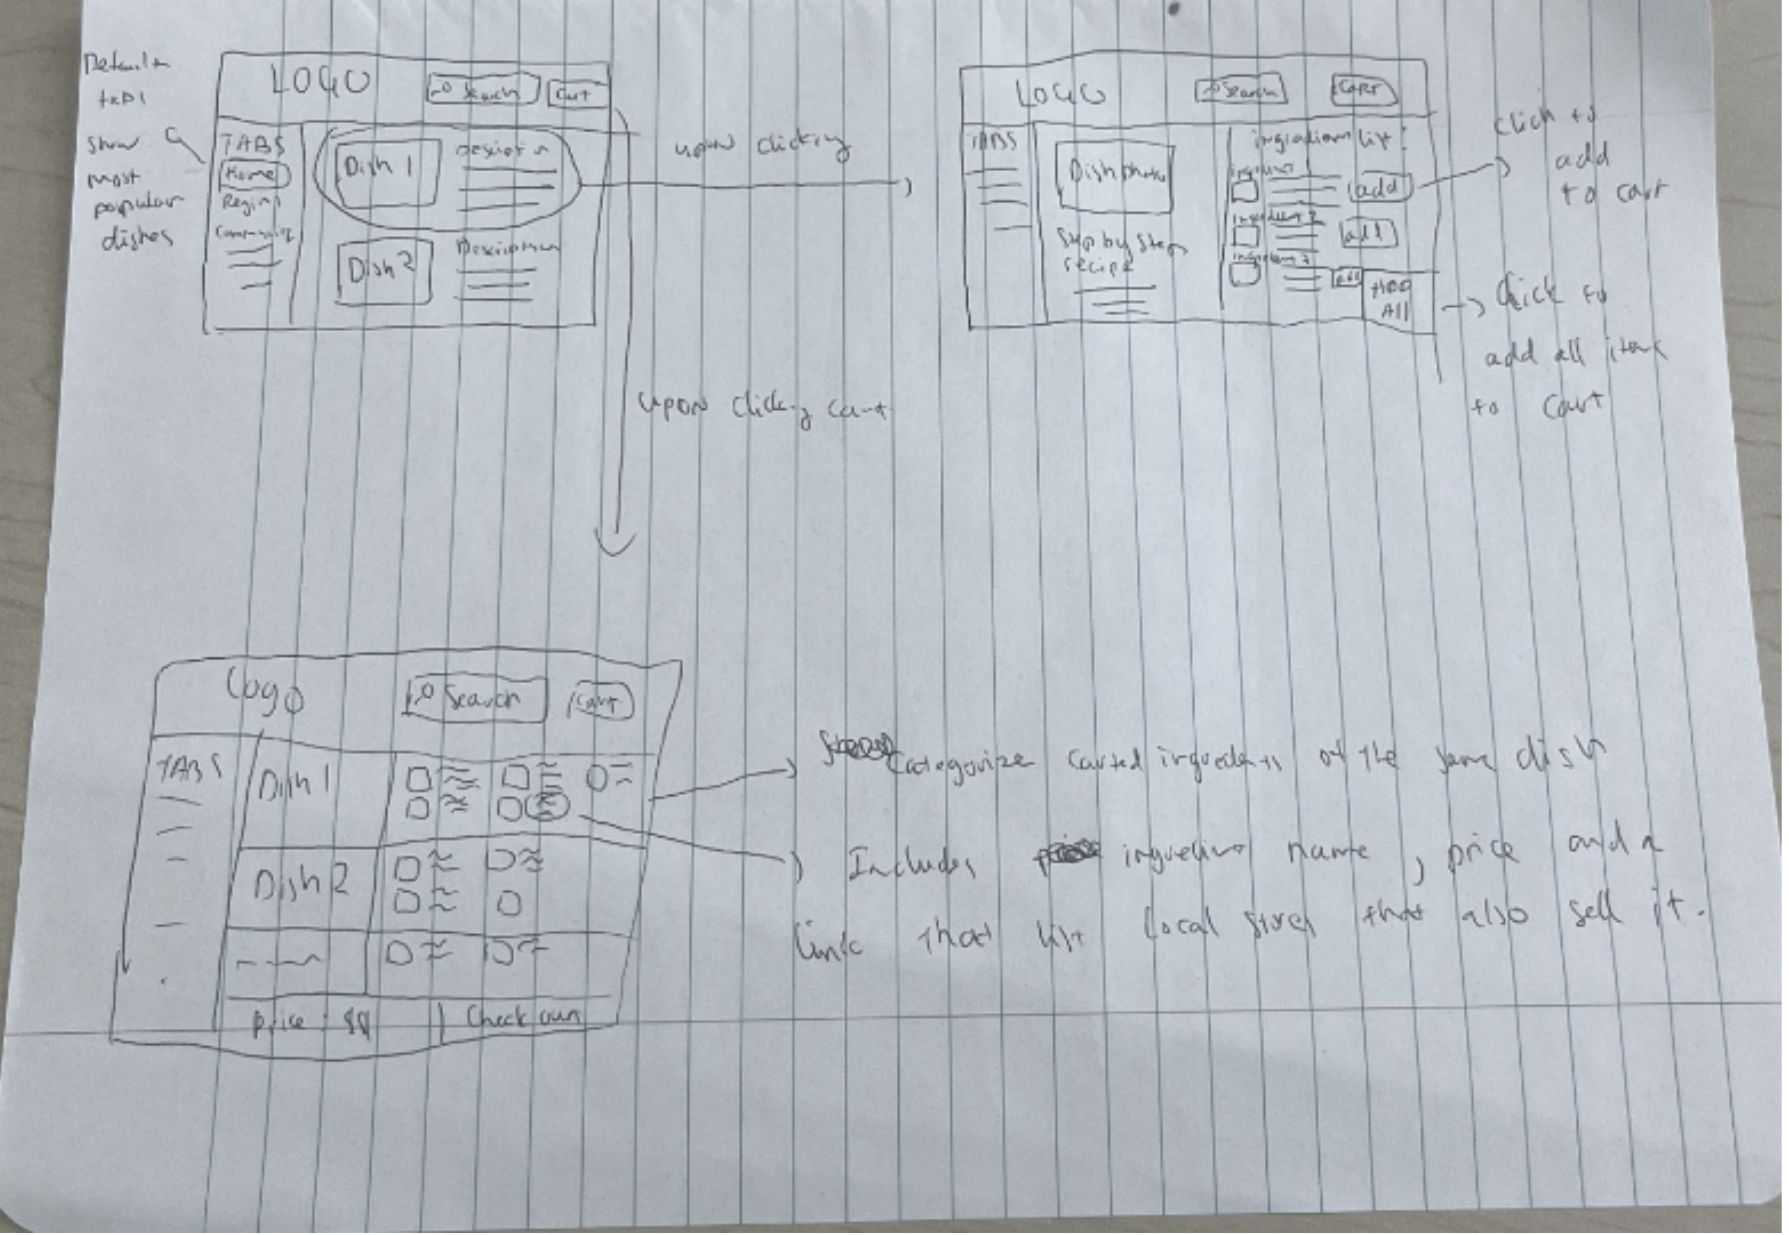 Default
tab
show
most
popular
dishes
LOGO
Search
Cart
TABS
Home
Region
Community
Dish 1
Description
Dish 2
Description
upon clicking
upon clicking cart
LOGO
Search
CART
TABS
Dish photo
Step by step
recipe
ingredient list:
ingredient 1
add
ingredient 2
add
ingredient 3
add
Add
All
click to
add
to cart
Click to
add all item
to cart
Logo
Search
Cart
TABS
Dish 1
Dish 2
Price : $$
Check out
Categorize carted ingredients of the same dish
Includes ingredient name, price and a
link that list local stores that also sell it.